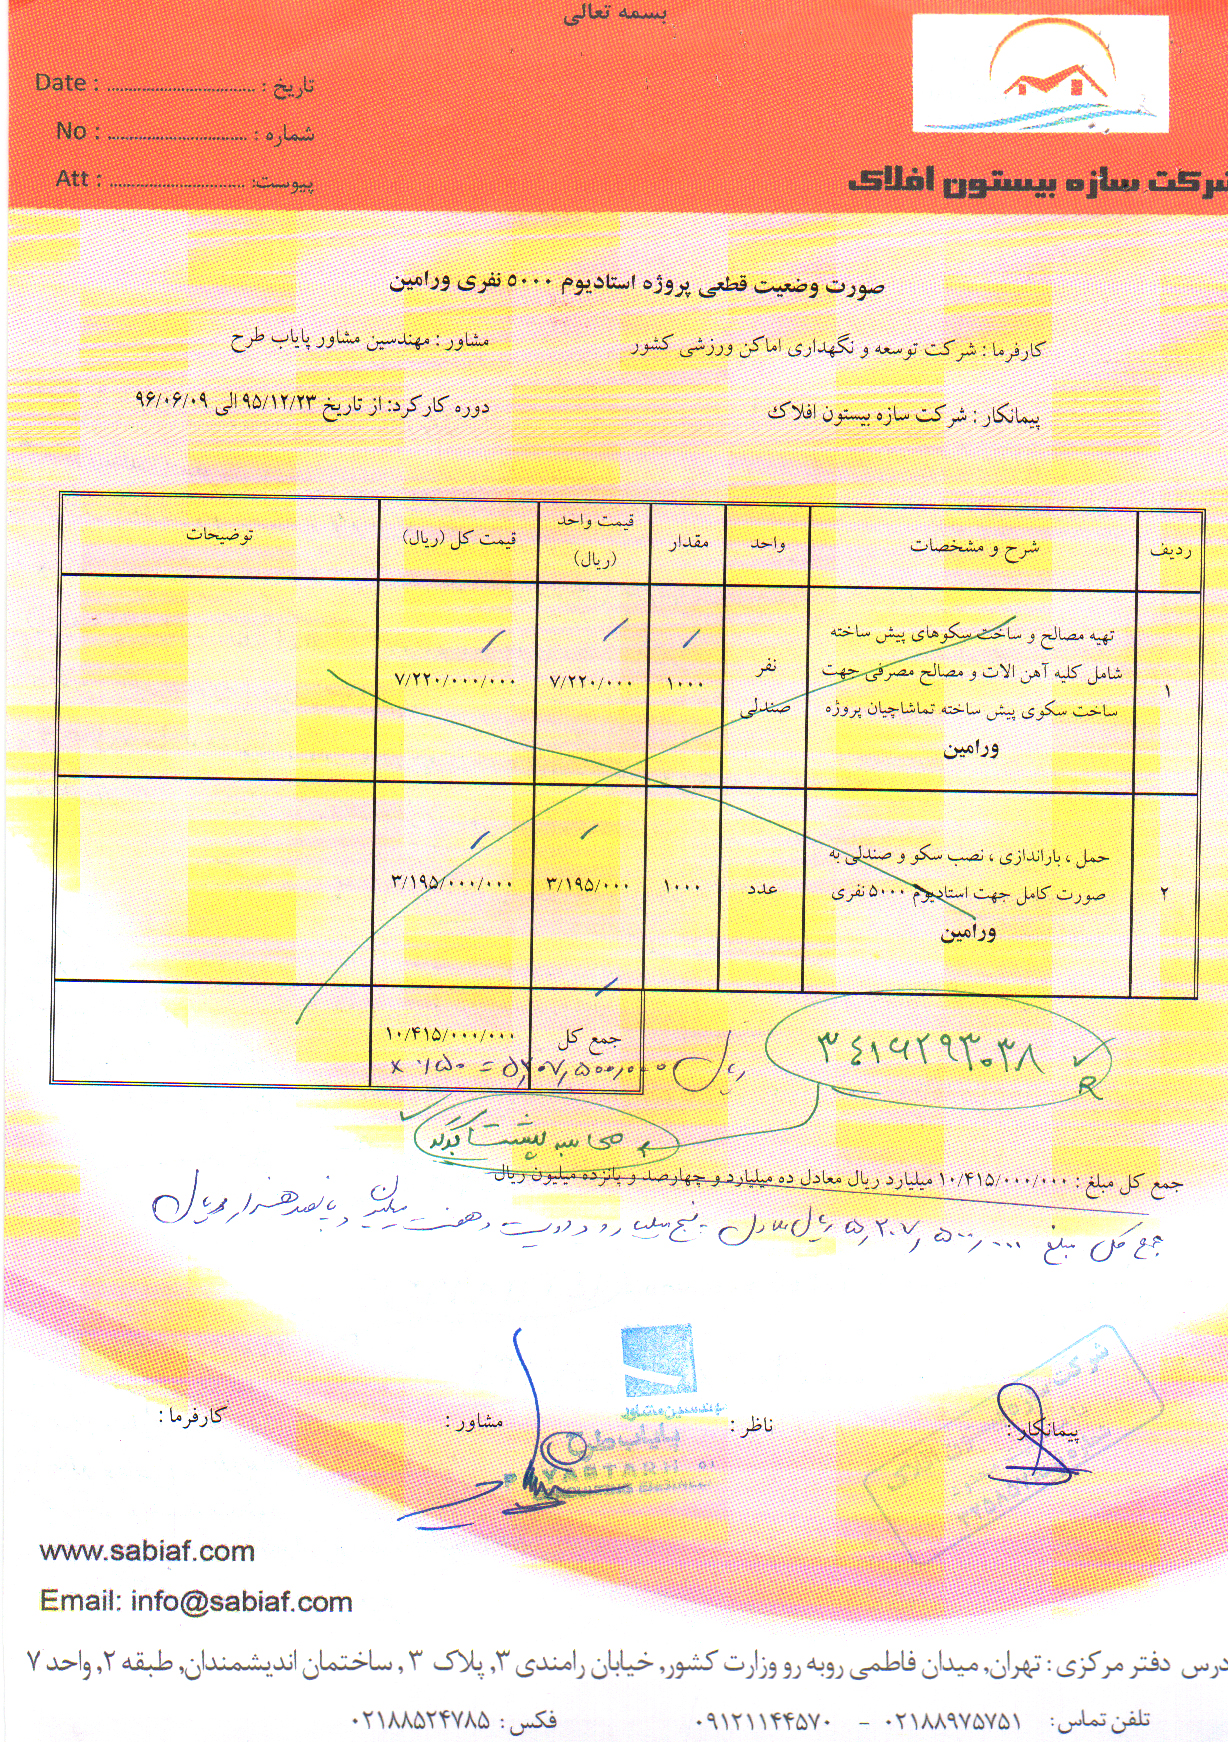 بسمه تعالی
تاریخ : .................... Date :
شماره : .................... No :
پیوست: .................... Att :
شرکت سازه بیستون افلاک
صورت وضعیت قطعی پروژه استادیوم ۵۰۰۰ نفری ورامین
کارفرما : شرکت توسعه و نگهداری اماکن ورزشی کشور
مشاور : مهندسین مشاور پایاب طرح
پیمانکار : شرکت سازه بیستون افلاک
دوره کارکرد: از تاریخ ۹۵/۱۲/۲۳ الی ۹۶/۰۶/۰۹
ردیف شرح و مشخصات واحد مقدار قیمت واحد (ریال) قیمت کل (ریال) توضیحات
۱
تهیه مصالح و ساخت سکوهای پیش ساخته
شامل کلیه آهن الات و مصالح مصرفی جهت
ساخت سکوی پیش ساخته تماشاچیان پروژه
ورامین
نفر
صندلی
۱۰۰۰ ۷/۲۲۰/۰۰۰ ۷/۲۲۰/۰۰۰/۰۰۰
۲
حمل ، باراندازی ، نصب سکو و صندلی به
صورت کامل جهت استادیوم ۵۰۰۰ نفری
ورامین
عدد ۱۰۰۰ ۳/۱۹۵/۰۰۰ ۳/۱۹۵/۰۰۰/۰۰۰
جمع کل ۱۰/۴۱۵/۰۰۰/۰۰۰
× ۰٫۵۰ = ۵٫۲۰۷٫۵۰۰٫۰۰۰ ریال
۳۴۱۶۲۹۳۰۳۸
محاسبه پشت برگه
جمع کل مبلغ : ۱۰/۴۱۵/۰۰۰/۰۰۰ میلیارد ریال معادل ده میلیارد و چهارصد و پانزده میلیون ریال
جمع کل مبلغ ۵٫۲۰۷٫۵۰۰٫۰۰۰ ریال معادل پنج میلیارد و دویست و هفت میلیون و پانصد هزار ریال
پیمانکار :
ناظر :
مشاور :
کارفرما :
مهندسین مشاور
پایاب طرح
شرکت
www.sabiaf.com
Email: info@sabiaf.com
درس دفتر مرکزی : تهران, میدان فاطمی روبه رو وزارت کشور, خیابان رامندی ۳, پلاک ۳ , ساختمان اندیشمندان, طبقه ۲, واحد ۷
تلفن تماس: ۰۲۱۸۸۹۷۵۷۵۱ - ۰۹۱۲۱۱۴۴۵۷۰ فکس : ۰۲۱۸۸۵۲۴۷۸۵